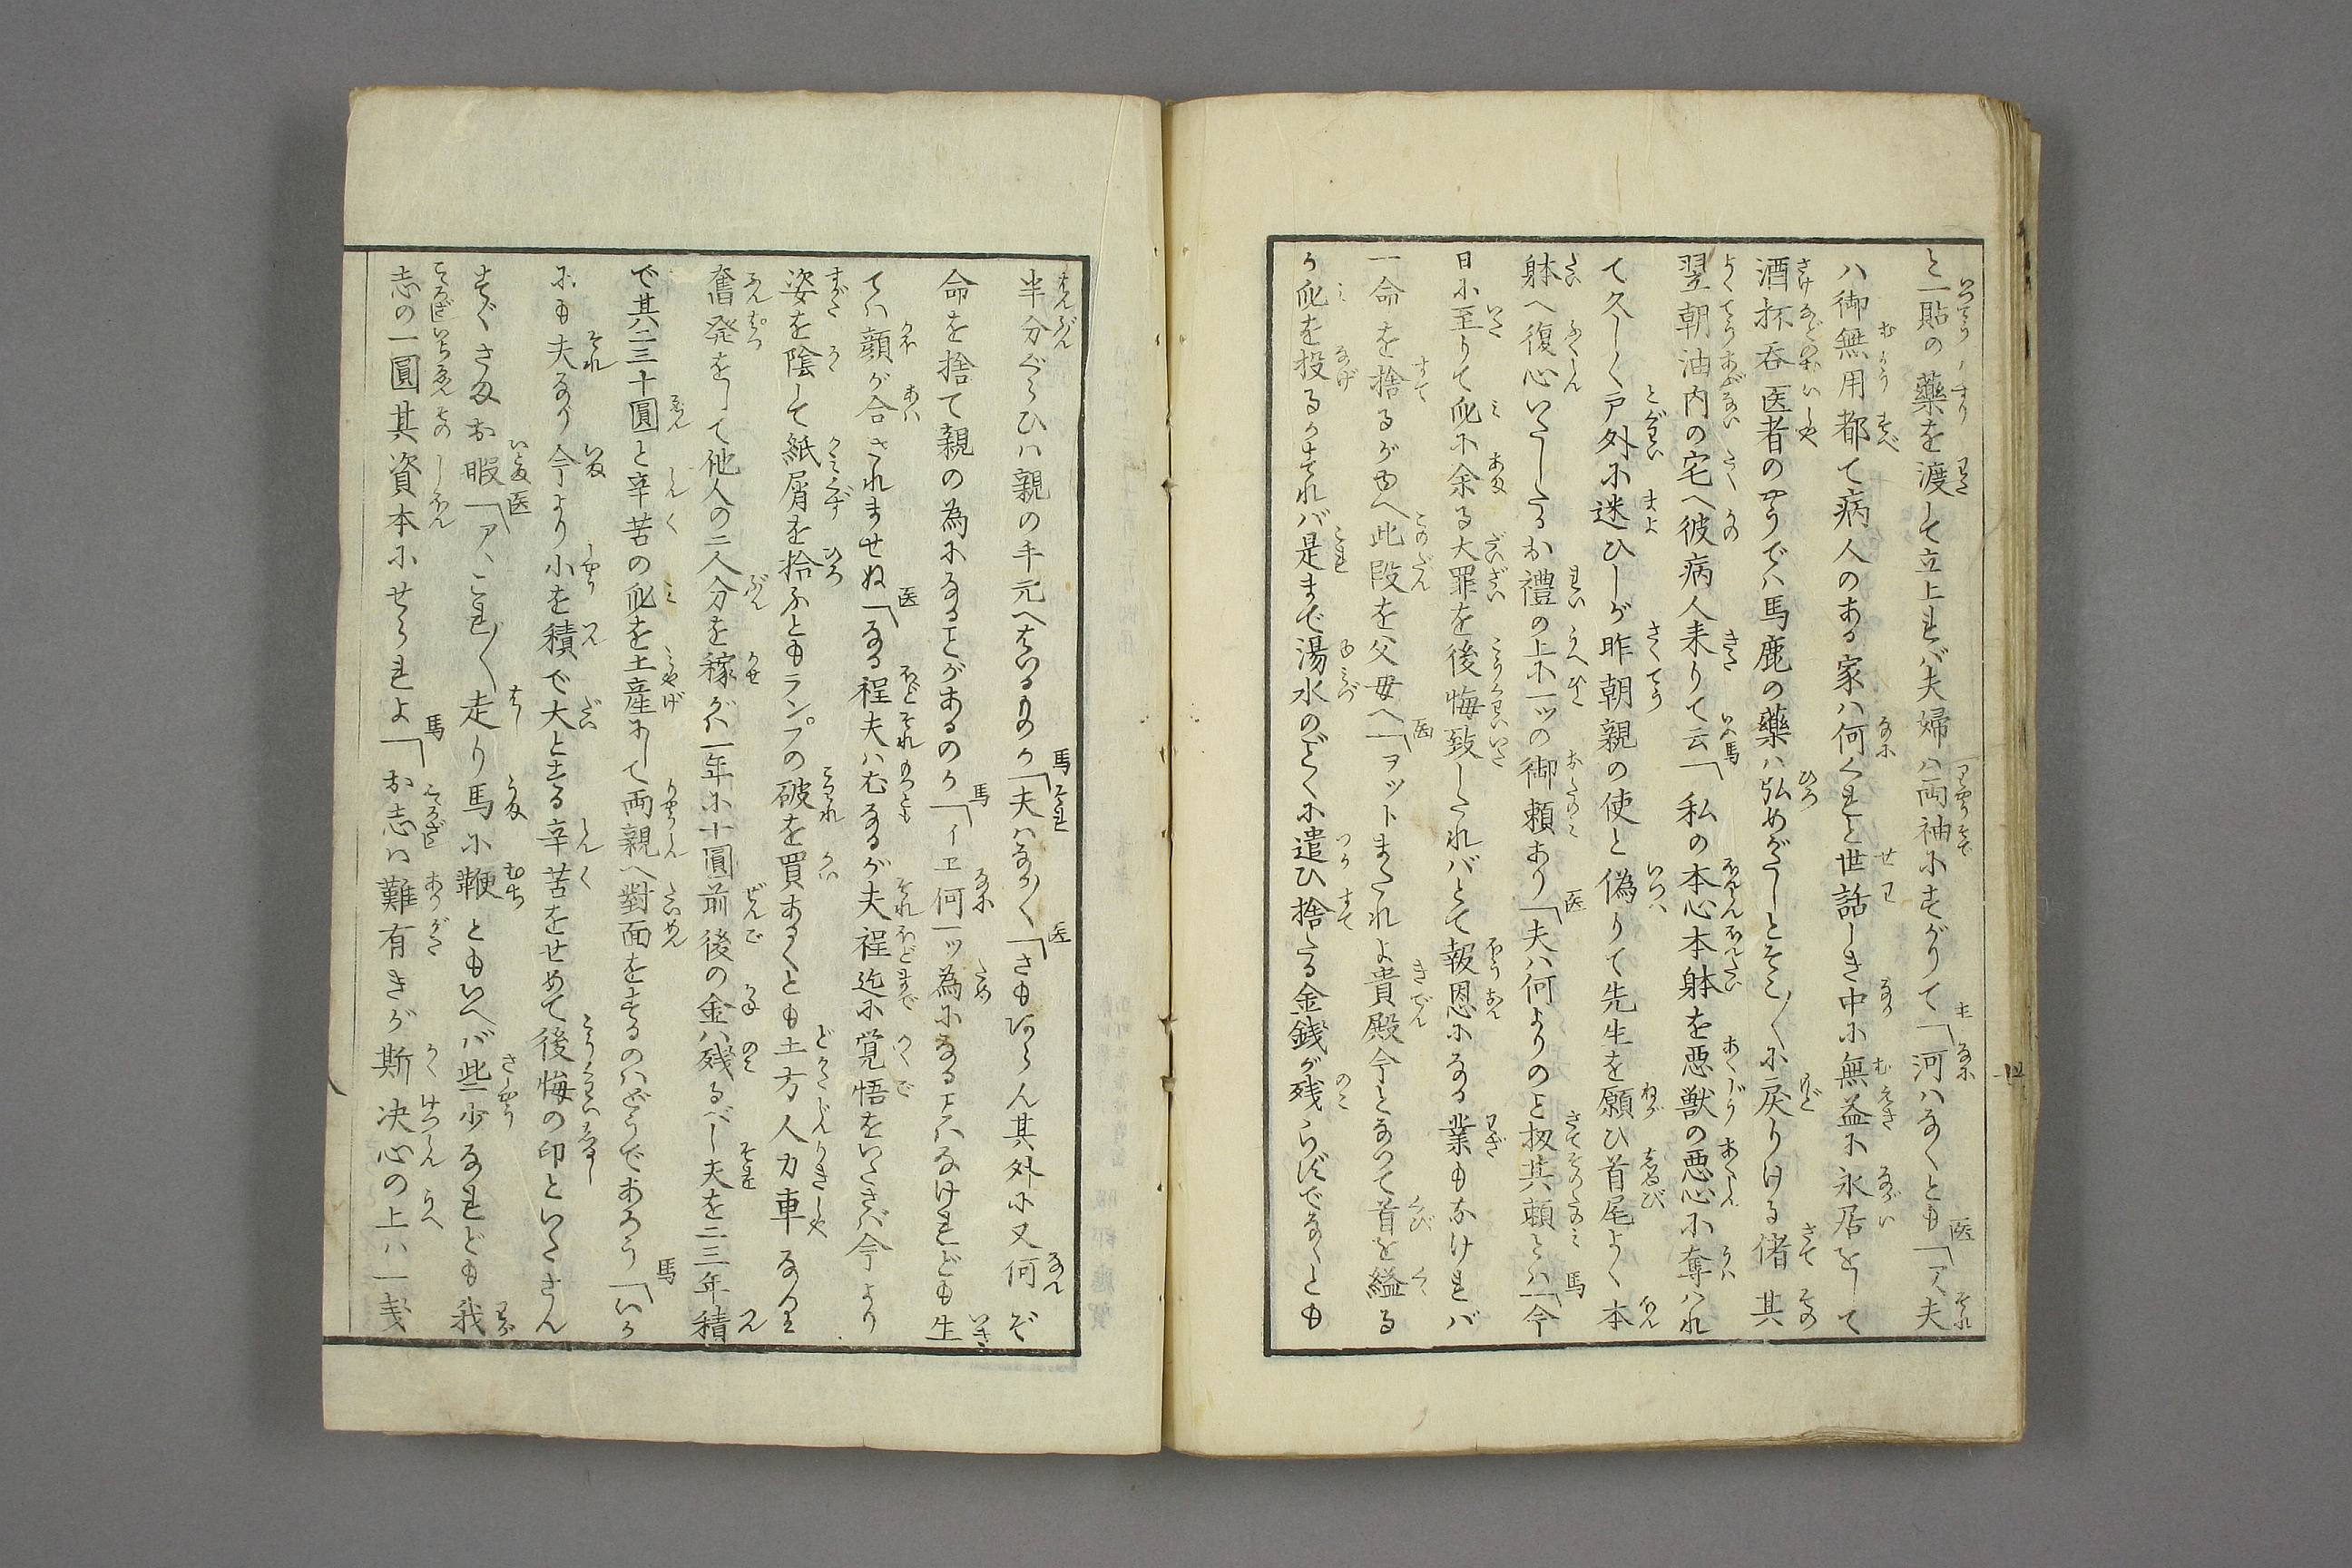 と一貼の藥を渡して立上れバ夫婦ハ両袖にすがりて「河ハなくとも「アヽ夫
ハ御無用都て病人のある家ハ何くれと世話しき中に無益に永居をして
酒抔呑医者のやうでハ馬鹿の藥ハ弘めがたしとそこ〳〵に戻りける偖其
翌朝油内の宅へ彼病人来りて云「私の本心本躰を悪獣の悪心に奪ハれ
て久しく戸外に迷ひしが昨朝親の使と偽りて先生を願ひ首尾よく本
躰へ復心いたしたるお禮の上に一ッの御頼あり「夫ハ何よりのと扨其頼とハ「今
日に至りて身に余る大罪を後悔致したれバとて報恩になる業もなけれバ
一命を捨るがゆへ此段を父母へ「ヲットまたれよ貴殿今となつて首を縊る
か身を投るかすれバ是まで湯水のごとくに遣ひ捨たる金銭が残らずでなくとも
半分ぐらひハ親の手元へはいるものか「夫ハなか〳〵「さもあらん其外に又何ぞ
命を捨て親の為になることがあるのか「イエ何一ッ為になることハなけれども生
てハ顔が合されませぬ「なる程夫ハ尤なるが夫程迄に覚悟をいたさバ今より
姿を陰して紙屑を拾ふともランプの破を買あるくとも土方人力車なりと
奮発をして他人の二人分を稼がバ一年に十圓前後の金ハ残るべし夫を二三年積
で其二三十圓と辛苦の身を土産にして両親へ對面をするのハどうであろう「いか
にも夫なり今より小を積で大とする辛苦をせめて後悔の印といたさん
すぐさまお暇「アヽこれ〳〵走り馬に鞭ともいへバ些少なれども我
志の一圓其資本にせられよ「お志ハ難有きが斯決心の上ハ一銭